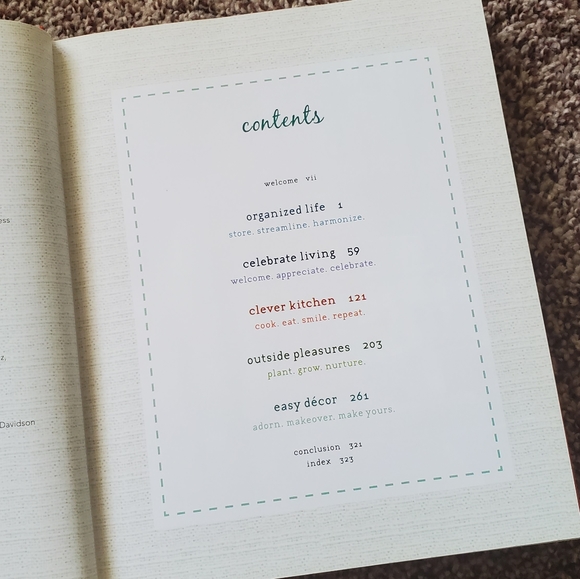 ess
z,
Davidson
contents
welcome vii
organized life 1
store. streamline. harmonize.
celebrate living 59
welcome. appreciate. celebrate.
clever kitchen 121
cook. eat. smile. repeat.
outside pleasures 203
plant. grow. nurture.
easy décor 261
adorn. makeover. make yours.
conclusion 321
index 323